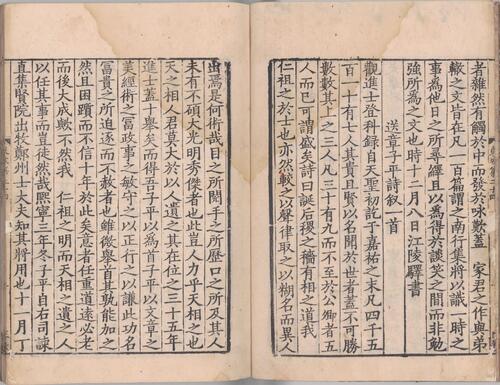 者雜然有觸於中而發於咏歎蓋 家君之作與弟
轍之文皆在凡一百篇謂之南行集將以識一時之
事為他日之所尋繹且以為得於談笑之間而非勉
強所為之文也時十二月八日江陵驛書
送章子平詩叙一首
觀進士登科録自天聖初訖于嘉祐之末凡四千五
百一十有七人其貴且賢以名聞於世者蓋不可勝
數數其上之三人凡三十有九而不至於公卿者五
人而已可謂盛矣詩曰誕后稷之穡有相之道我
仁祖之於士也亦然較之以聲律取之以糊名而異人
出焉是何術哉目之所閱手之所歷口之所及其人
未有不碩大光明秀傑者也此豈人力乎天相之也
天之相人君莫大於以人遺之其在位之三十五年
進士蓋十舉矣而得吾子平以為首子平以文章之
美經術之富政事之敏守之以正行之以謙此功名
冨貴之所迫逐而不赦者也雖微舉首其孰能加之
然且困躓而不信十年於此矣意者任重道遠必老
而後大成歟不然我 仁祖之明而天相之遺之人
以任其事而豈徒然哉熈寧三年冬子平自右司諫
直集賢院出牧鄭州士大夫知其將用也十一月丁